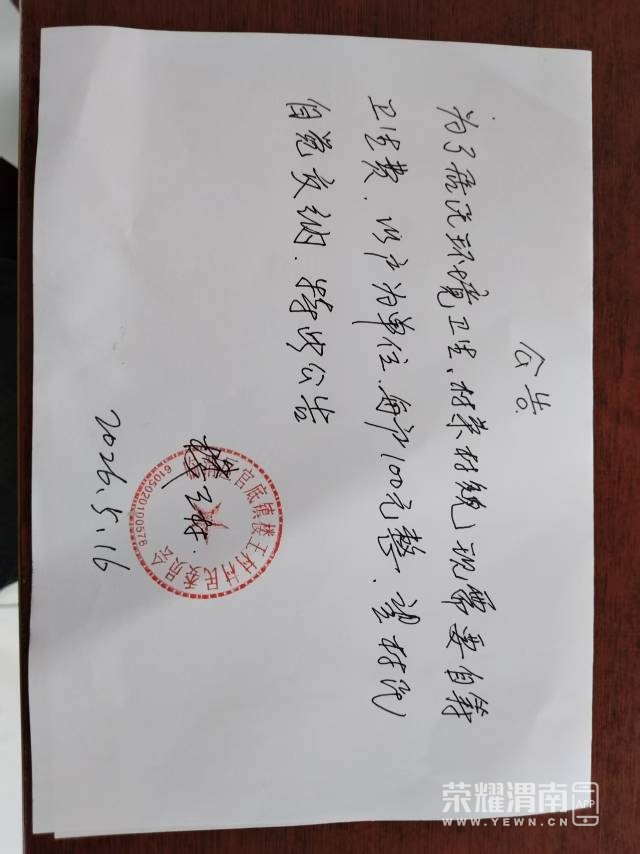 公告
为了居民环境卫生、村容村貌，现需要自筹
卫生费，以户为单位，每户100元整，望村民
自觉交纳.特此公告
楼王村.
官底镇楼王村村民委员会
6105020100578
2026.5.16
荣耀渭南
APP
WWW.YEWN.CN